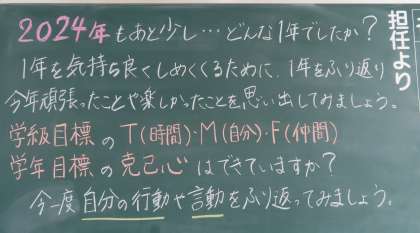 担任より
2024年もあと少し…どんな1年でしたか？
1年を気持ち良くしめくくるために、1年をふり返り
今年頑張ったことや楽しかったことを思い出してみましょう。
学級目標のT(時間)・M(自分)・F(仲間)
学年目標の克己心はできていますか？
今一度自分の行動や言動をふり返ってみましょう。